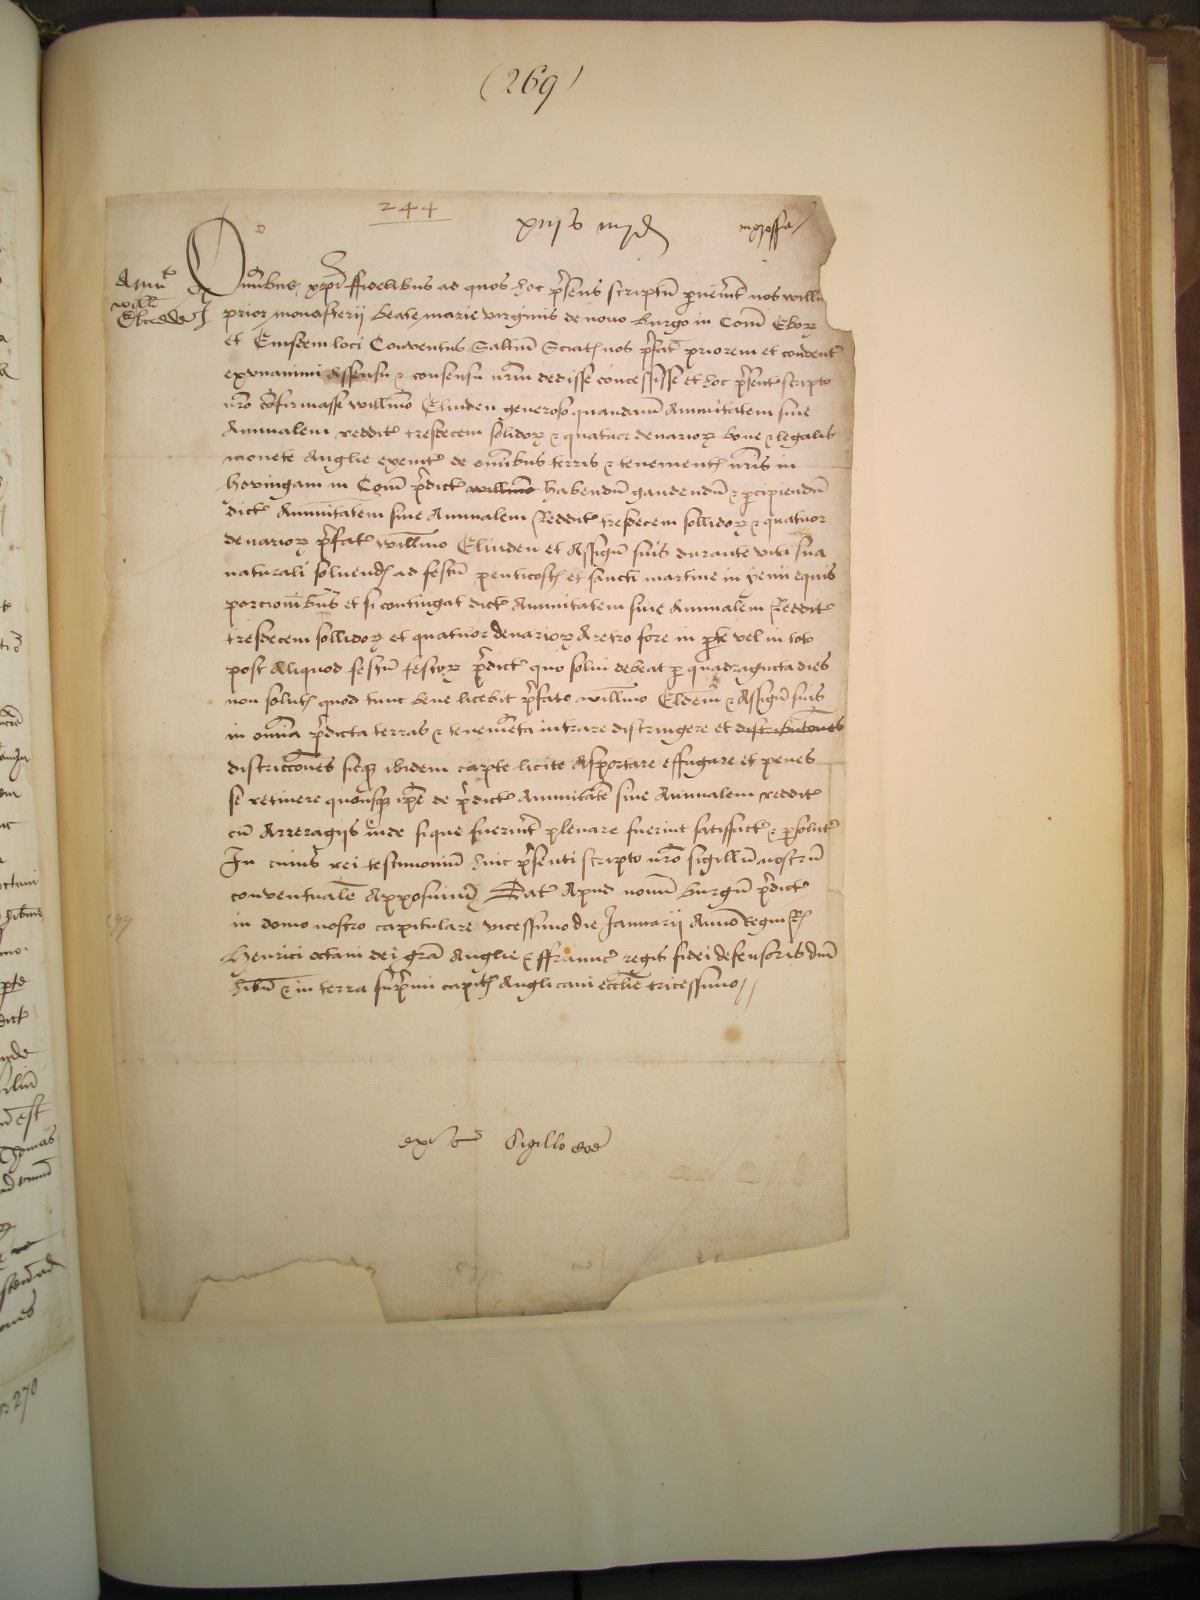 (269)
244
xiijs iiijd ingrossa
Annut
Willi
Elinden
Omnibus xpi ffidelibus ad quos hoc pr̃sens scriptũ pervenĩt nos willm
prior monasterij beate marie virginis de novo burgo in Com̃ Ebor
et Eiusdem loci Conventus Saltm̃ Sciatis nos pr̃fat priorem et convent
ex unanimi Assensu & consensu nr̃m dedisse concessisse et hoc pr̃sent scripto
nr̃o cõfirmasse willm̃o Elinden generoso quandam Annuitatem sine
Annualem reddit tresdecem solidor & quatuor denarior bone & legalis
monete Anglie exeunt de om̃ibus terris & tenement nr̃is in
hovingam in Com̃ pr̃dict willm̃o habendũ gaudendũ & p̱cipiendũ
dict Annuitatem sine Annualem Reddit tresdecem sollidor & quatuor
denarior pr̃fat willm̃o Elinden et Assigñ suis durante vita sua
naturali solvend ad festũ penticost et sancti martine in yemi equis
porcionibus et si contingat dict Annuitatem sine Annualem Reddit
tresdecem sollidor et quatuor denarior Aretro fore in p̱te vel in toto
post Aliquod festũ festor pr̃dict quo solvi debeat p̱ quadraginta dies
non solut quod tunc bene licebit pr̃fato willm̃o Eldem̃ & Assigñ suis
in om̃ia pr̃dicta terras & tenem̃eta intrare distringere et distributones
districcones sicq ibidem capte licite Asportare effugare et penes
se retinere quousq ip̃e de pr̃dict Annuitatẽ sine Annualem reddit
cũ Arreragijs inde sique fuerint plenare fuerint satisfact & p̱solut
In cuius rei testimoniũ huic pr̃senti scripto nr̃o sigillũ nostrũ
conventualẽ Apposuim Dat Apud novũ burgũ pr̃dict
in domo nostro capitulare vicessimo die Januarij Anno regni R
Henrici octavi dei gr̃a Anglie & ffraunc regis fidei defensoris dñi
hibñ & in terra supr̃mi capit Anglicani eccliẽ tricessimo
Sigillo